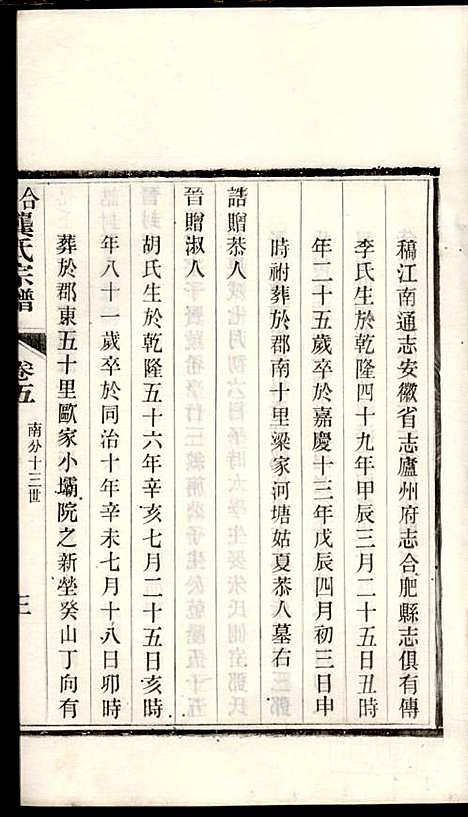 稿江南通志安徽省志廬州府志合肥縣志俱有傳
李氏生於乾隆四十九年甲辰三月二十五日丑時
年二十五歲卒於嘉慶十三年戊辰四月初三日申
時祔葬於郡南十里梁家河塘姑夏恭人墓右
誥贈恭人
晉贈淑人
胡氏生於乾隆五十六年辛亥七月二十五日亥時
年八十一歲卒於同治十年辛未七月十八日卯時
葬於郡東五十里歐家小壩院之新塋癸山丁向有
合龔氏宗譜
卷五
南分十三世
三